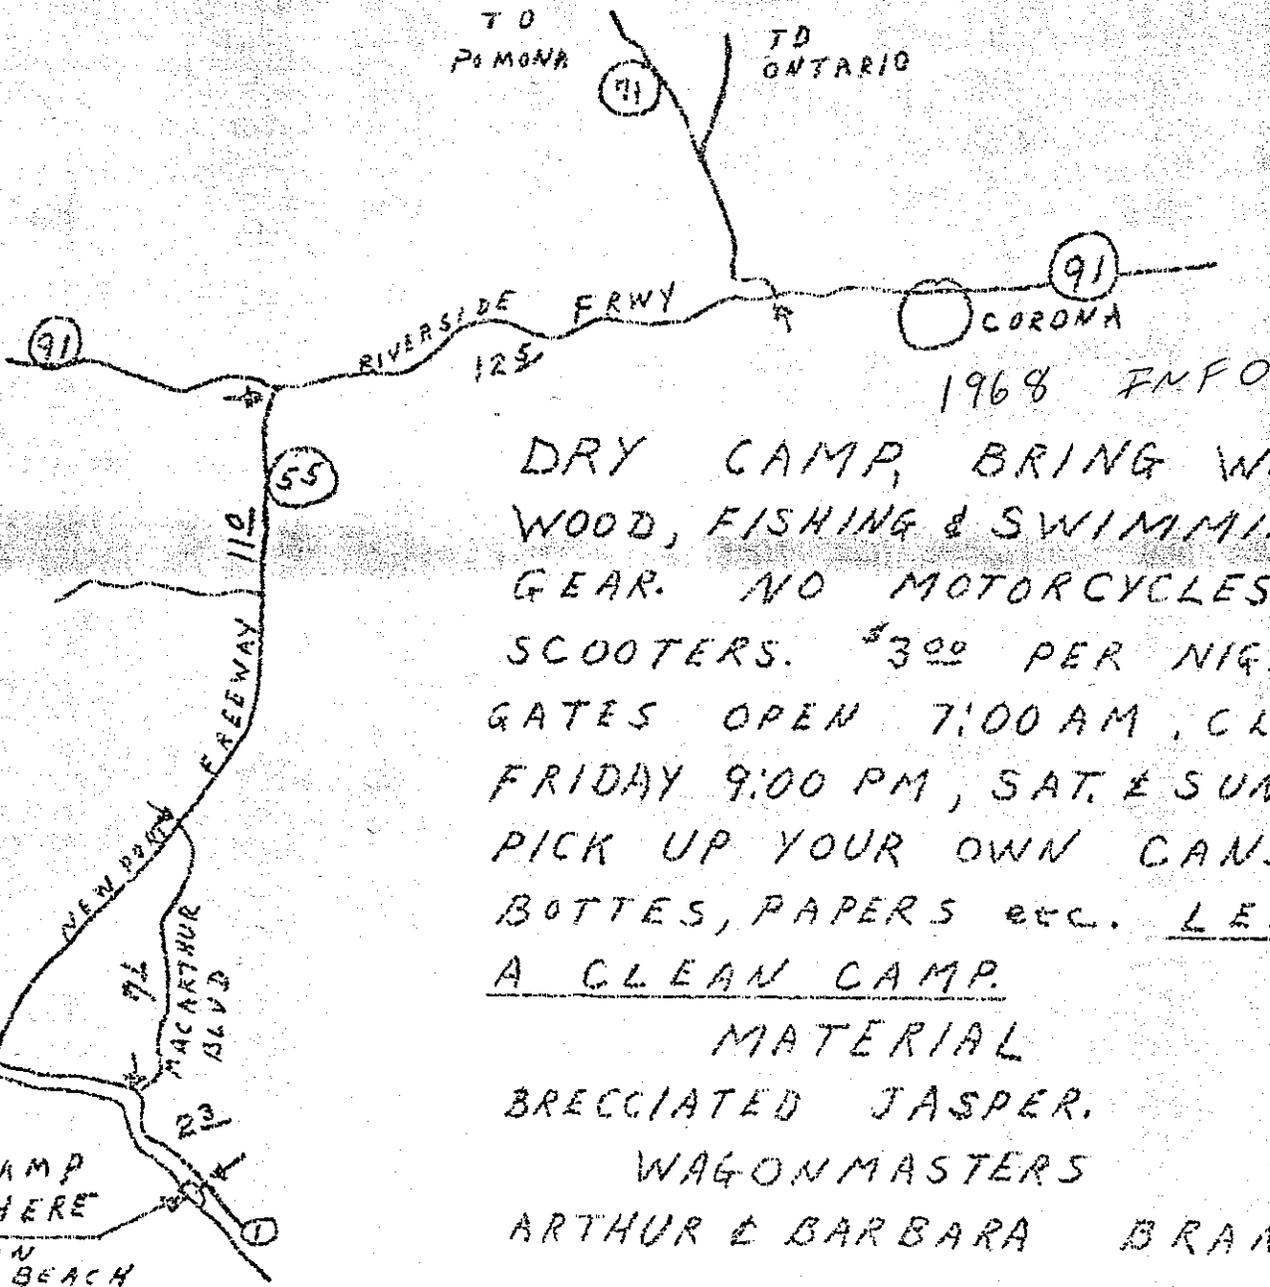 TO
POMONA
71
TO
ONTARIO
91
CORONA
RIVERSIDE FRWY
12 5
91
55
11 0
FREEWAY
NEWPORT
MACARTHUR
BLVD
2 3
1
AMP
HERE
N
BEACH
1968 INFO
DRY CAMP, BRING W
WOOD, FISHING & SWIMMI
GEAR. NO MOTORCYCLES
SCOOTERS. $3 00 PER NIG
GATES OPEN 7:00 AM. CL
FRIDAY 9:00 PM, SAT. & SUN
PICK UP YOUR OWN CANS
BOTTES, PAPERS etc. LE
A CLEAN CAMP.
MATERIAL
BRECCIATED JASPER.
WAGONMASTERS
ARTHUR & BARBARA BRAN